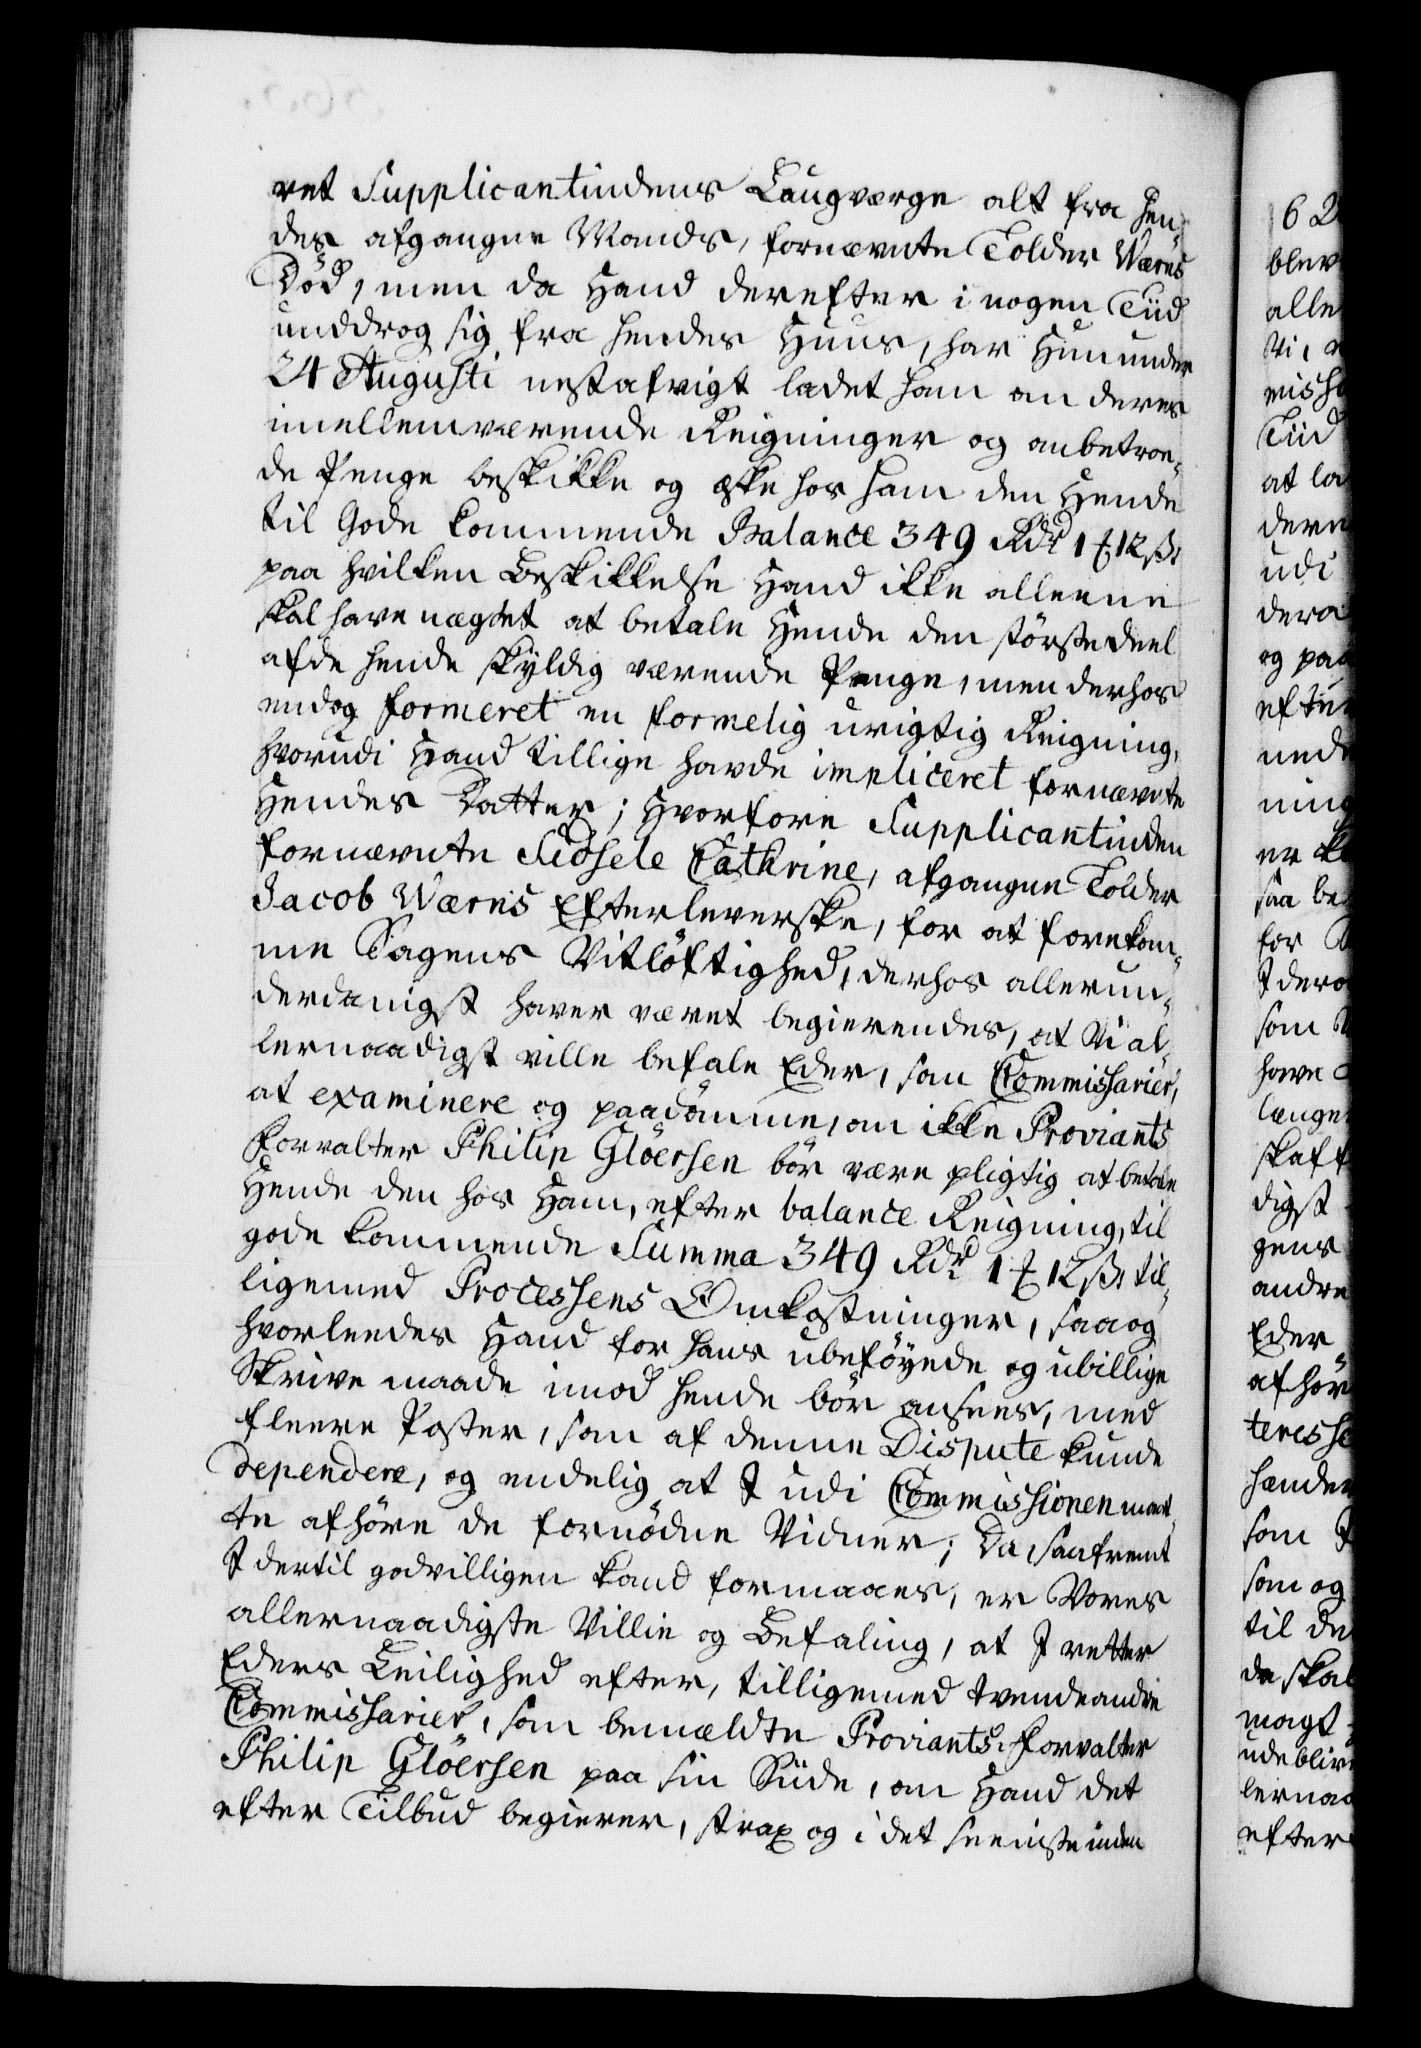 ret Supplicantindens Laugværge alt fra Hen-
des afgangne Mands, fornævnte Tolder Wærns
Död, men da Hand derefter i nogen Tiid
unddrog sig fra hendes Huus, har Hun under
24 Augusti nestafvigt ladet ham om deres
imellemværende Reigninger og anbetroe-
de Penge beskikke og æske hos ham den Hende
til Gode kommende Balance 349 Rdr 1 ₰ 12 ß,
paa hvilken Beskikkelse Hand ikke alleene
skal have nægtet at betale Hende den störstedeel
af de hende skyldig værende Penge, men derhos
endog formeret en formelig urigtig Reigning,
hvorudi Hand tillige havde impliceret fornævnte
Hendes Datter; Hvorfore Supplicantinden
fornævnte Sidsele Cathrine, afgangne Tolder
Jacob Wærns Efterleverske, for at forekom-
me Sagens Vitlöftighed, derhos allerun-
derdanigst haver været begierendes, at Vi al-
lernaadigst ville befale Eder, som Commissarier,
at examinere og paadömme, om ikke Proviants
Forvalter Philip Glöersen bör være pligtig at betale
Hende den hos Ham, efter balance Reigning, til
gode kommende Summa 349 Rdr 1 ₰ 12 ß, til-
ligemed Processens Omkostninger, saa og
hvorleedes Hand for hans ubeföyede og ubillige
Skrive maade imod hende bör ansees, med
fleere Poster, som af denne Dispute kunde
dependere, og endelig at I udi Commissionen maat-
te afhöre de fornödne Vidner; Da, saafremt
I dertil godvilligen kand formaaes, er Vores
allernaadigste Villie og Befaling, at I retter
Eders Leilighed efter, tilligemed tvende andre
Commissarier, som bemældte Proviants-Forvalter
Philip Glöersen paa sin Siide, om Hand det
efter Tilbud begierer, strax og i det seeniste inden